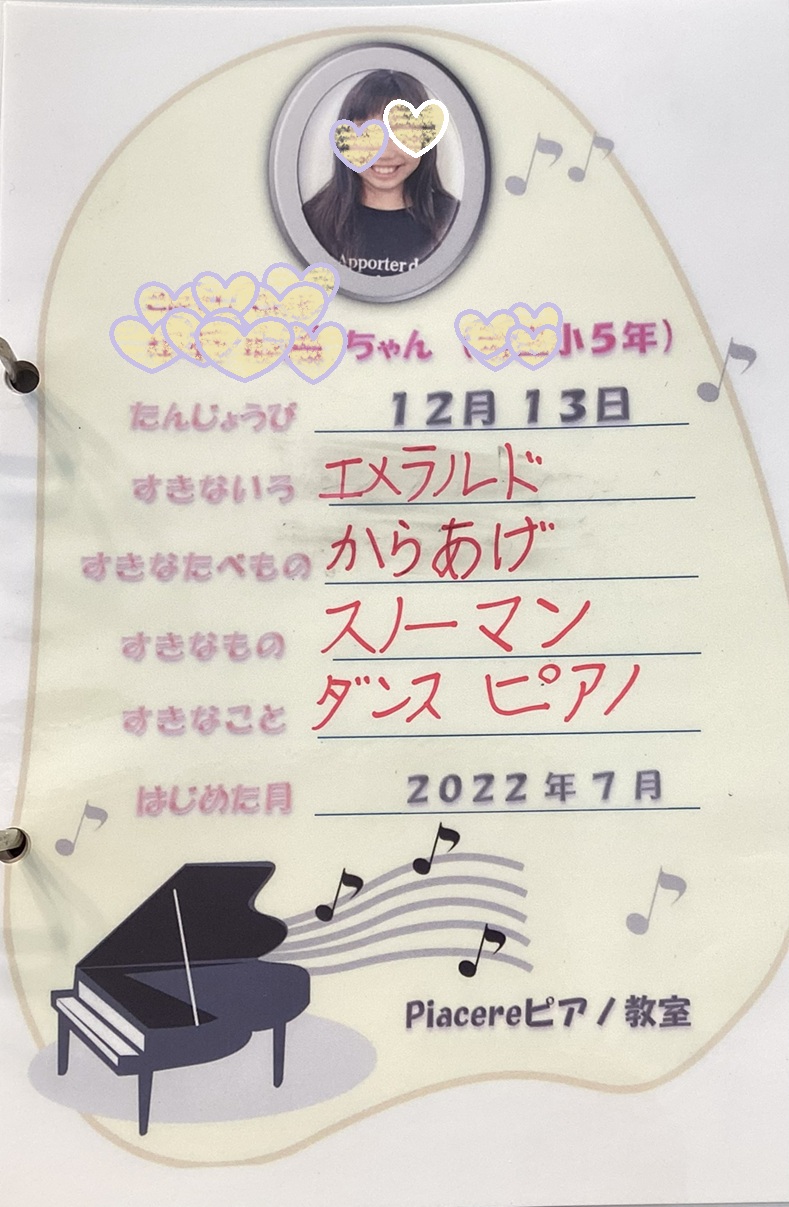 Apporter d
ちゃん（小5年）
たんじょうび 12月13日
すきないろ エメラルド
すきなたべもの からあげ
すきなもの スノーマン
すきなこと ダンス ピアノ
はじめた月 2022年7月
Piacereピアノ教室